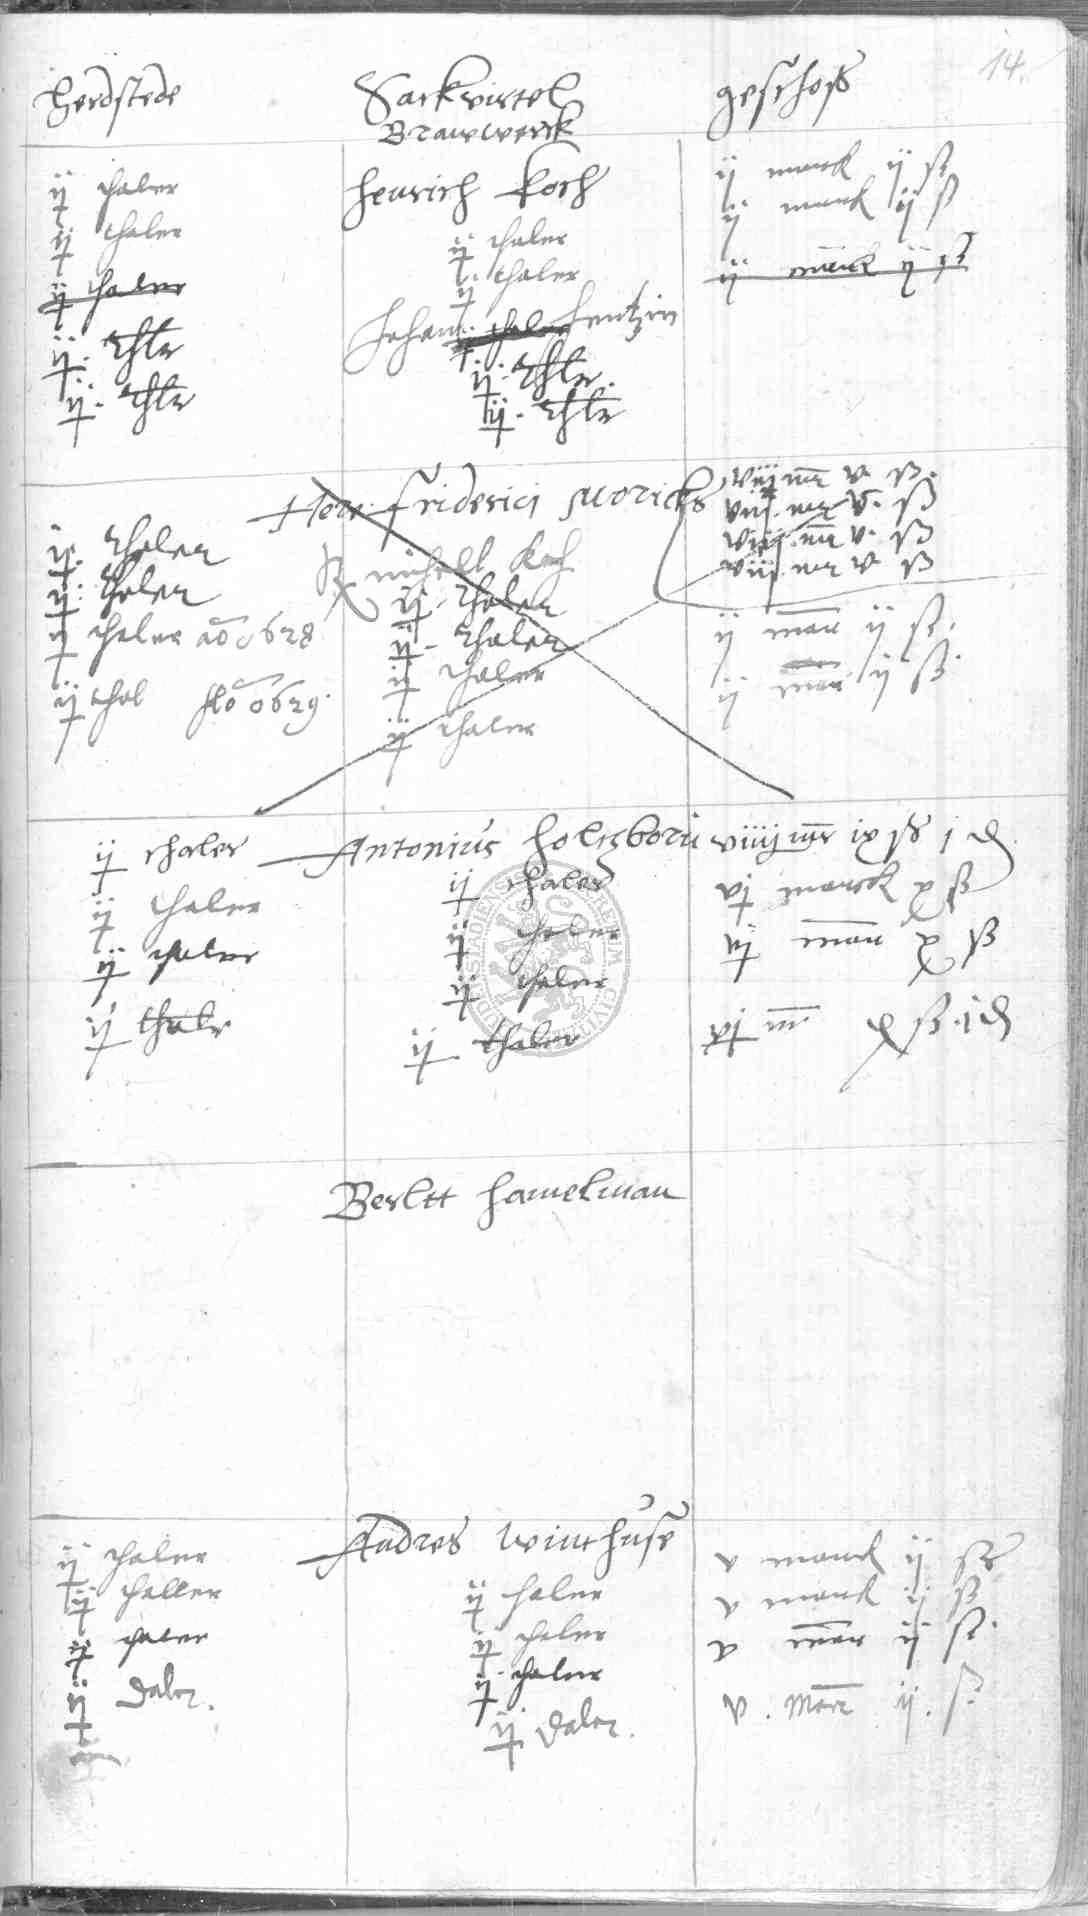 14.
Herdstede Sackvirtel geschoß
Brauwerck
Henrich Koch
ij thaler ij marck ij ß
ij thaler ij thaler ij marck ij ß
ij thaler ij thaler ij marck ij ß
Johan thaler Hentzin
ij. thlr ij. thlr.
ij. thlr ij. thlr
Herr Friderici Moricks viij mr v. ß.
viij. mr v. ß
viij. mr v. ß
viij. mr v ß
ij. thaler michell Koch
ij. thaler ij. thaler
ij thaler ao 1628 ij. thaler ij mar ij ß.
ij thal Ao 1629. ij thaler ij mar ij ß.
ij thaler
ij thaler Antonius Holtzborn viiij mr ix ß j d
ij thaler ij thaler vj marck x ß
ij thaler ij thaler vj mar x ß
ij thaler
ij thalr ij thaler vj mr x ß. j d
Berltt Hamelman
Andres Winthuse
ij thaler ij thaler v marck ij ß
ij thaller ij thaler v marck ij ß
ij thaler ij thaler v mar ij ß.
ij Daler. ij Daler. v. Marc ij. ß.